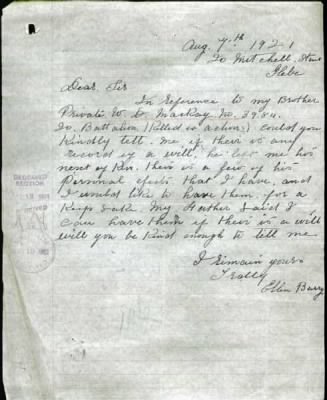 Aug. 7th 1921
20 Mitchell Street
Glebe
Dear Sir
In Reference to my Brother
Private W. C. Mackay. No. 3984.
20. Battalion (Killed in action) could you
Kindly tell. me if their is any
record of a will. he left me his
next of Kin. their is a few of his
Personal efects that I have, and
I would like to have them. for a
Keep Sake. My Father said I
can have them if their is a will
will you be kind enough to tell me
I Remain yours
Truly
Ellen Barry
DECEASED
SECTION